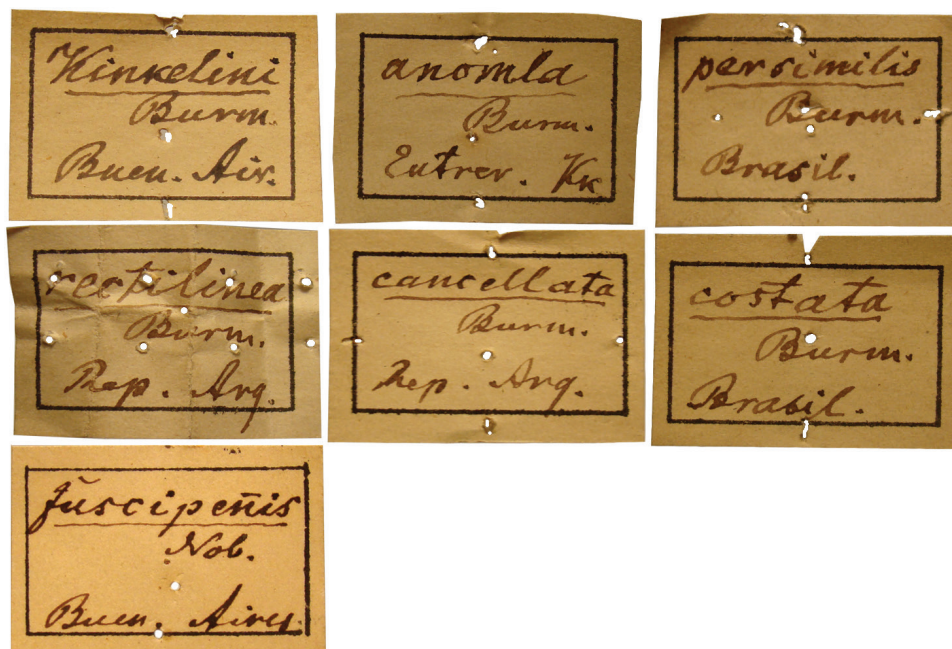 Kinkelini
Burm.
Buen. Air.
anomla
Burm.
Entrer. Kk
persimilis
Burm.
Brasil.
rectilinea
Burm.
Rep. Arg.
cancellata
Burm.
Rep. Arg.
costata
Burm.
Brasil.
fuscipen̄is
Nob.
Buen. Aires.